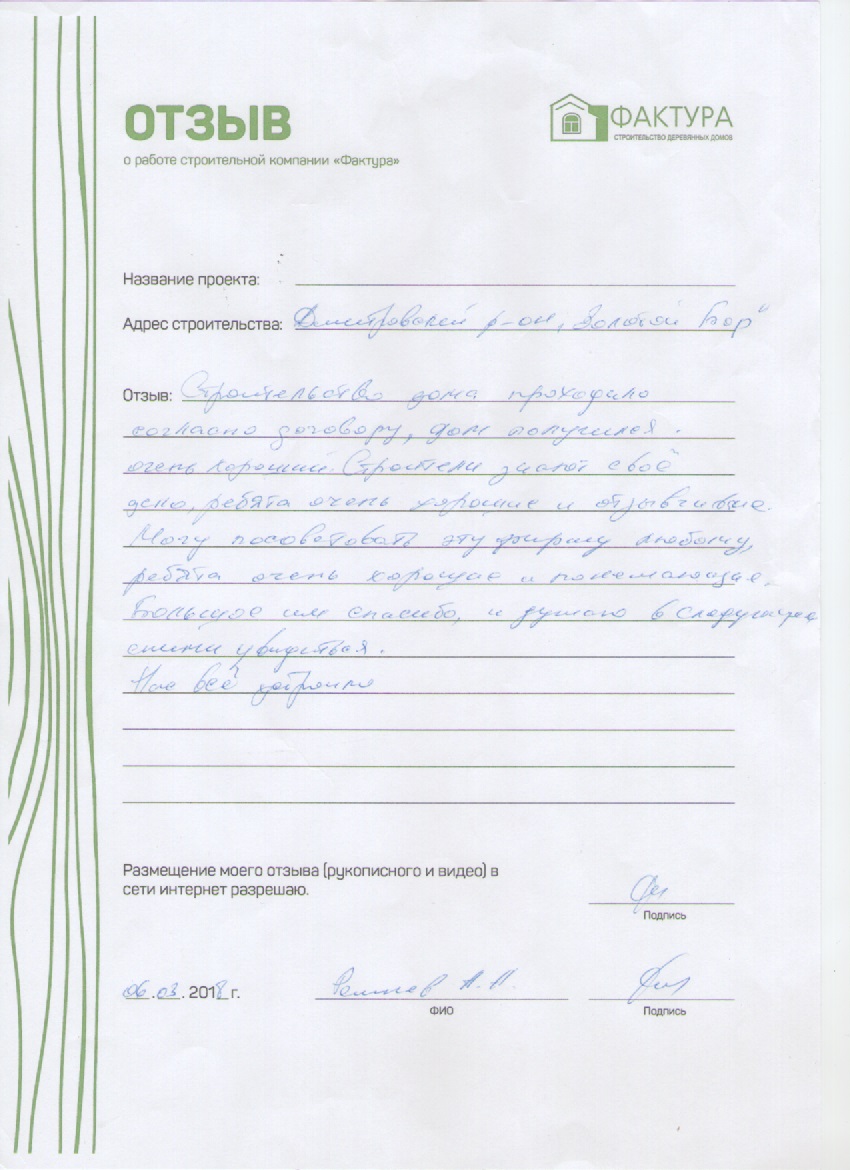 ОТЗЫВ
о работе строительной компании «Фактура»
ФАКТУРА
СТРОИТЕЛЬСТВО ДЕРЕВЯННЫХ ДОМОВ
Название проекта:
Адрес строительства: Дмитровский р-он, "Золотой Бор"
Отзыв: Строительство дома проходило
согласно договору, дом получился.
очень хороший. Строители знают своё
дело, ребята очень хорошие и отзывчивые.
Могу посоветовать эту фирму любому,
ребята очень хорошие и понемающие.
Большое им спасибо, и думаю в
сними увидеться.
Нас всё устроило
Размещение моего отзыва (рукописного и видео) в
сети интернет разрешаю.
Подпись
06.03.2018 г. А.
ФИО
Подпись